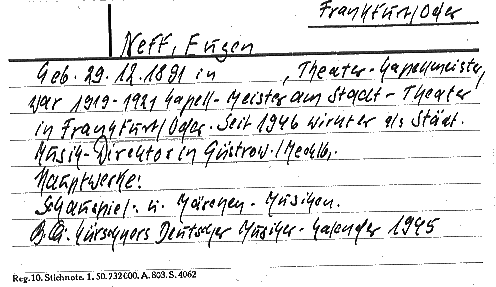 Frankfurt/Oder
Neff, Eugen
Geb. 29.12.1891 in , Theater-Kapellmeister,
war 1919-1921 Kapell-Meister am Stadt-Theater
in Frankfurt/Oder. Seit 1946 wirkte er als Städt.
Musik-Direktor in Güstrow/Mecklb.
Hauptwerke:
Schauspiel- u. Märchen-Musiken.
Kürschners Deutscher Musiker-Kalender 1945
Reg. 10. Stichnote. 1. 50. 732 000. A. 803. S. 4062